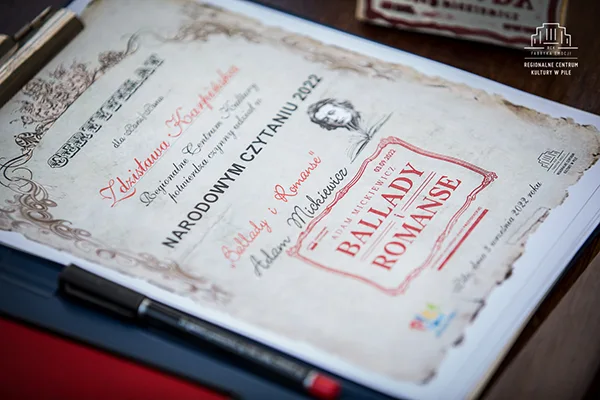 CERTYFIKAT
dla Pani/Pana
Zdzisława Karpińska
Regionalne Centrum Kultury
potwierdza czynny udział w
NARODOWYM CZYTANIU 2022
"Ballady i Romanse"
Adam Mickiewicz
03.09.2022
ADAM MICKIEWICZ
BALLADY
i
ROMANSE
Piła, dnia 3 września 2022 roku
MICKIEWICZ
RCK
FABRYKA EMOCJI
REGIONALNE CENTRUM
KULTURY W PILE